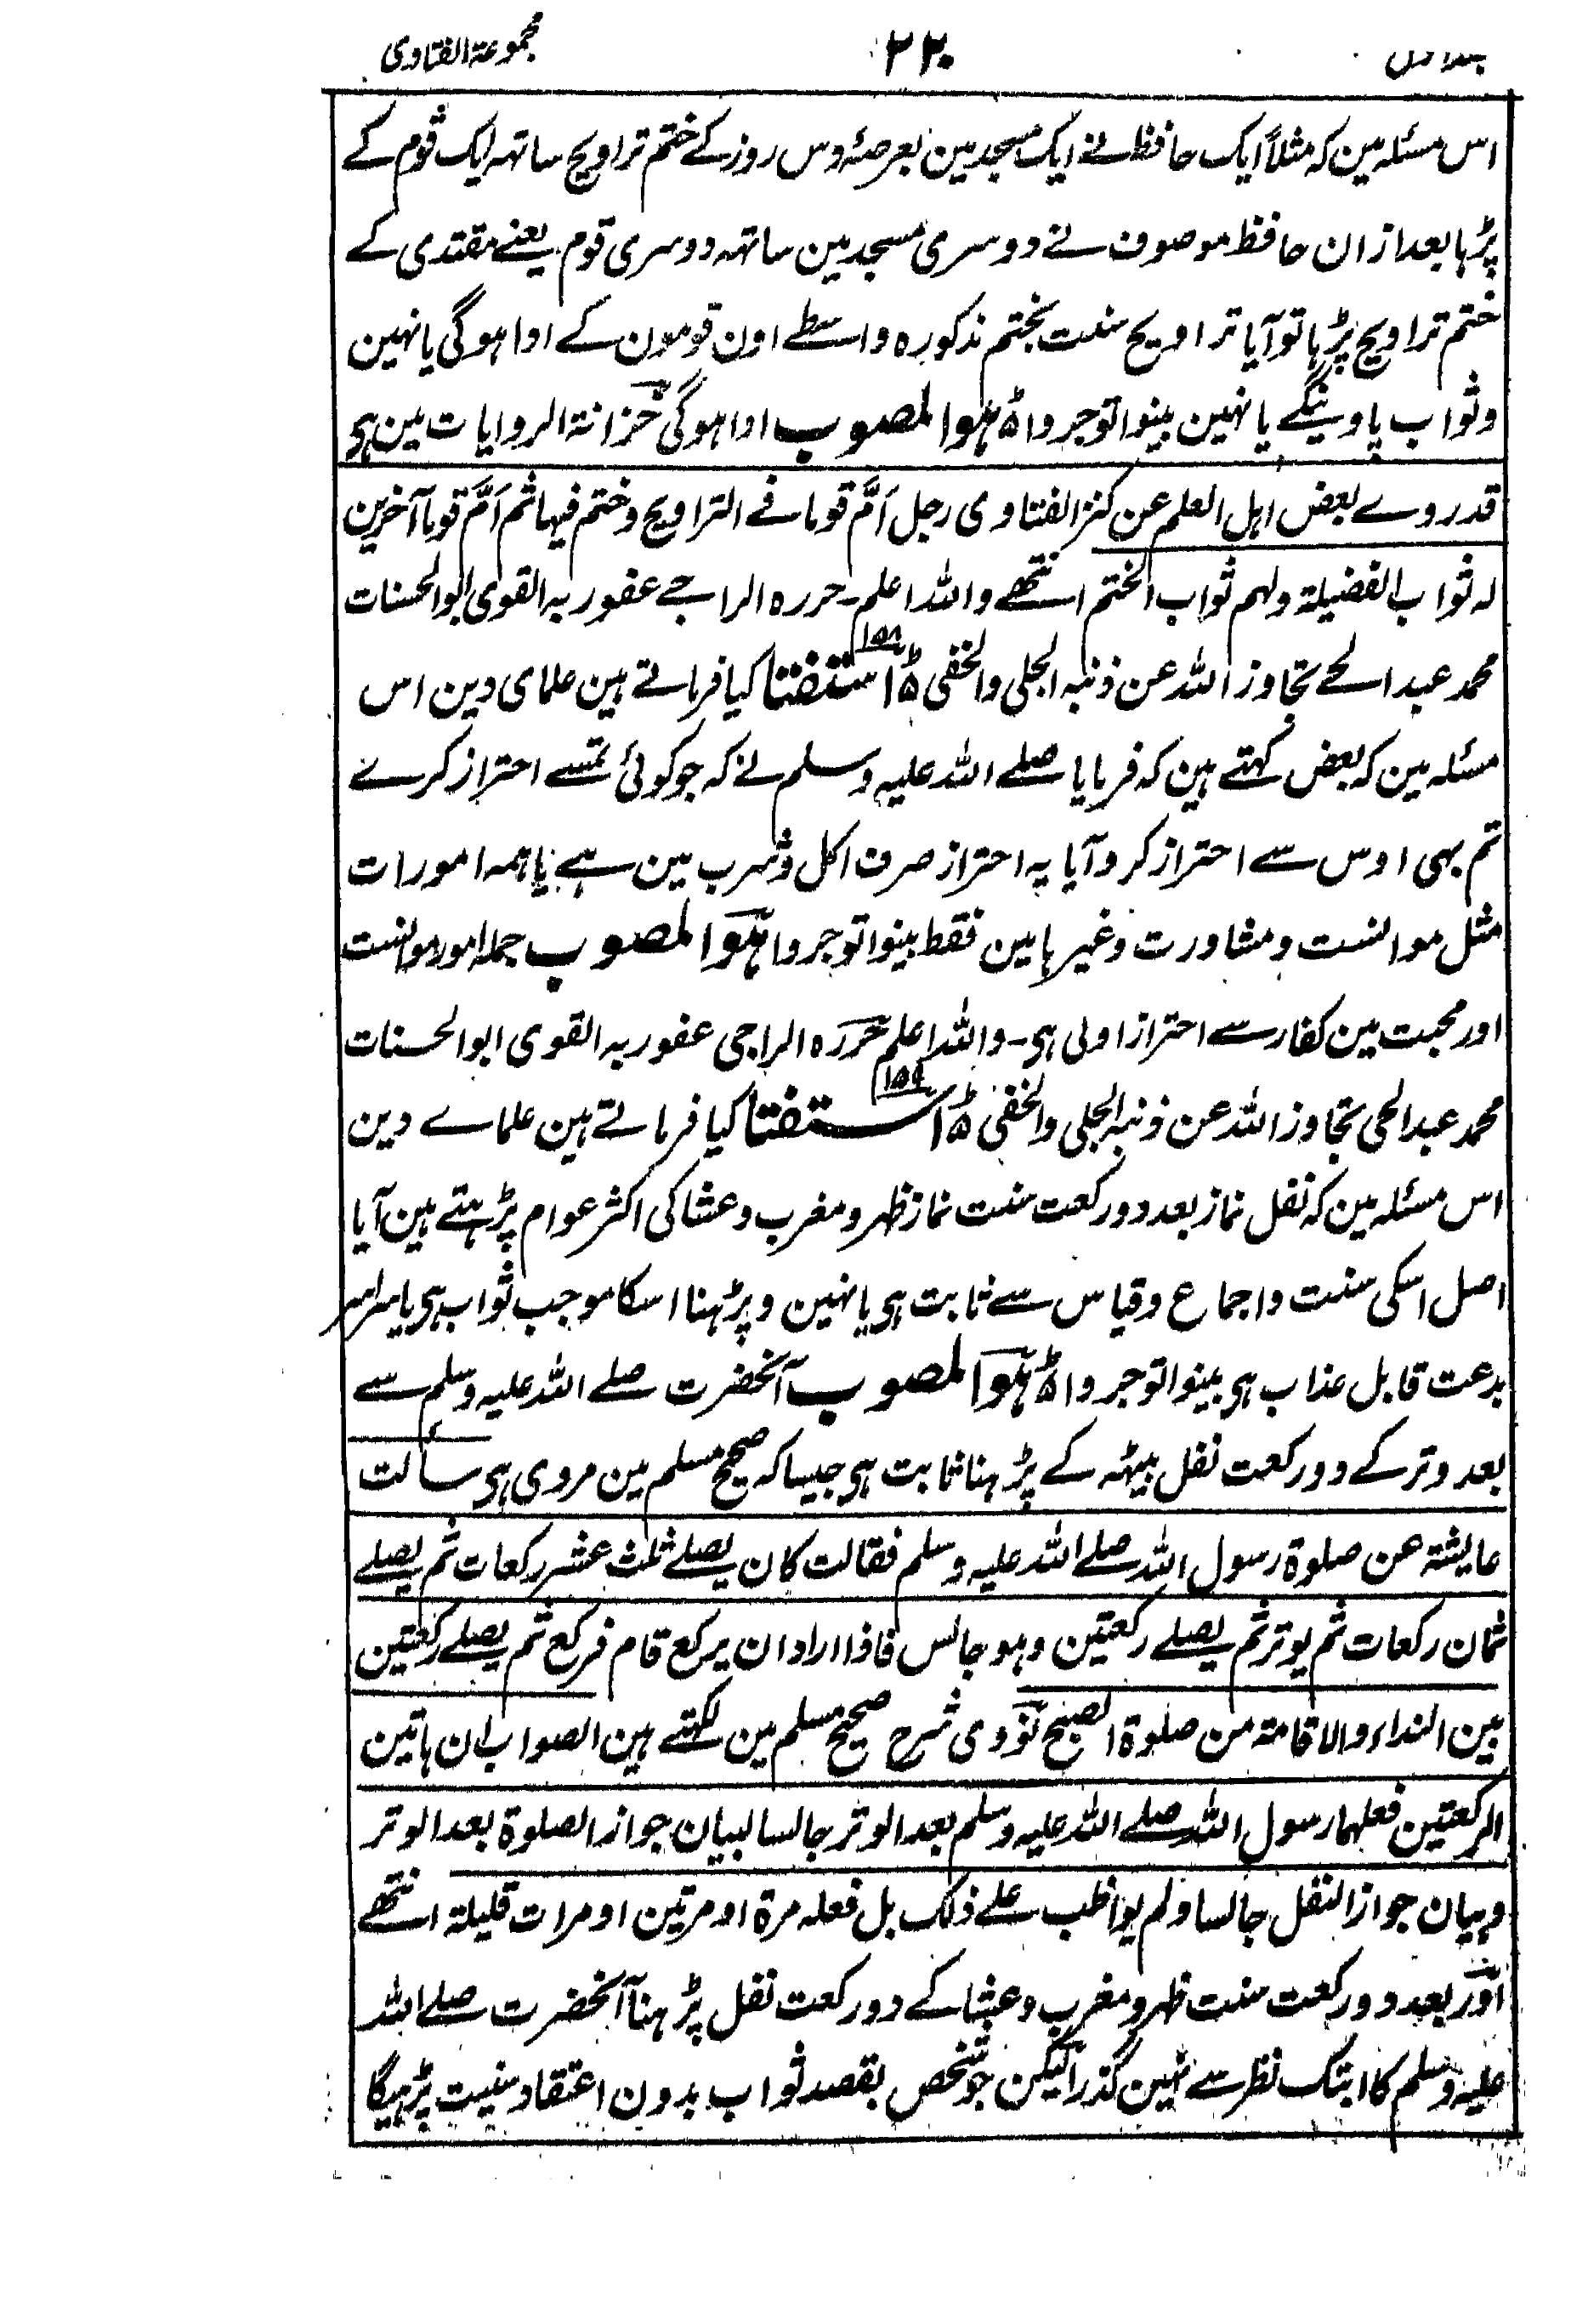 جلد اول ۲۲۰ مجموعۃ الفتاوی
اس مسئلہ مین کہ مثلاً ایک حافظ نے ایک مسجد مین بعرصۂ دس روز کے ختم تراویح ساتہہ ایک قوم کے
پڑہا بعد ازان حافظ موصوف نے دوسری مسجد مین ساتہہ دوسری قوم یعنے مقتدی کے
ختم تراویح پڑہا تو آیا تراویح سنت بختم مذکورہ واسطے اون قومون کے ادا ہوگی یا نہین
و ثواب پاوینگے یا نہین بینوا توجروا ھو المصوب ادا ہوگی خزانۃ الروایات مین ہی
قد روے بعض اہل العلم عن کنز الفتاوی رجل اَمَّ قوما فے التراویح وختم فیہا ثم اَمَّ قوما آخرین
لہ ثواب الفضیلۃ ولہم ثواب الختم انتھے واللہ اعلم۔ حررہ الراجے عفو ربہ القوی ابو الحسنات
محمد عبد الحے تجاوز اللہ عن ذنبہ الجلی والخفی ۱۵۸ استفتا کیا فرماتے ہین علمای دین اس
مسئلہ مین کہ بعض کہتے ہین کہ فرمایا صلے اللہ علیہ وسلم نے کہ جو کوئی تمسے احتراز کرے
تم بہی اوس سے احتراز کرو آیا یہ احتراز صرف اکل و شرب مین ہے یا ہمہ امورات
مثل موانست و مشاورت وغیرہا مین فقط بینوا توجروا ھو المصوب جملہ امور موانست
اور محبت مین کفار سے احتراز اولی ہی۔ واللہ اعلم حررہ الراجی عفو ربہ القوی ابو الحسنات
محمد عبد الحی تجاوز اللہ عن ذنبہ الجلی والخفی ۱۵۹ استفتا کیا فرماتے ہین علماے دین
اس مسئلہ مین کہ نفل نماز بعد دو رکعت سنت نماز ظہر و مغرب و عشا کی اکثر عوام پڑہتے ہین آیا
اصل اسکی سنت و اجماع و قیاس سے ثابت ہی یا نہین و پڑہنا اسکا موجب ثواب ہی یا سراسر
بدعت قابل عذاب ہی بینوا توجروا ھو المصوب آنحضرت صلے اللہ علیہ وسلم سے
بعد وتر کے دو رکعت نفل بیٹہہ کے پڑہنا ثابت ہی جیسا کہ صحیح مسلم مین مروی ہی سألت
عایشۃ عن صلوۃ رسول اللہ صلے اللہ علیہ وسلم فقالت کان یصلے ثلث عشر رکعات ثم یصلے
ثمان رکعات ثم یوتر ثم یصلے رکعتین وہو جالس فاذا اراد ان یرکع قام فرکع ثم یصلے رکعتین
بین النداء والاقامۃ من صلوۃ الصبح نووی شرح صحیح مسلم مین لکہتے ہین الصواب ان ہاتین
الرکعتین فعلہما رسول اللہ صلے اللہ علیہ وسلم بعد الوتر جالسا لبیان جواز الصلوۃ بعد الوتر
وبیان جواز النفل جالسا ولم یواظب علے ذلک بل فعلہ مرۃ او مرتین او مرات قلیلۃ انتھے
اور بعد دو رکعت سنت ظہر و مغرب و عشا کے دو رکعت نفل پڑہنا آنحضرت صلے اللہ
علیہ وسلم کا ابتک نظر سے نہین گذرا لیکن جو شخص بقصد ثواب بدون اعتقاد سنیت پڑہیگا